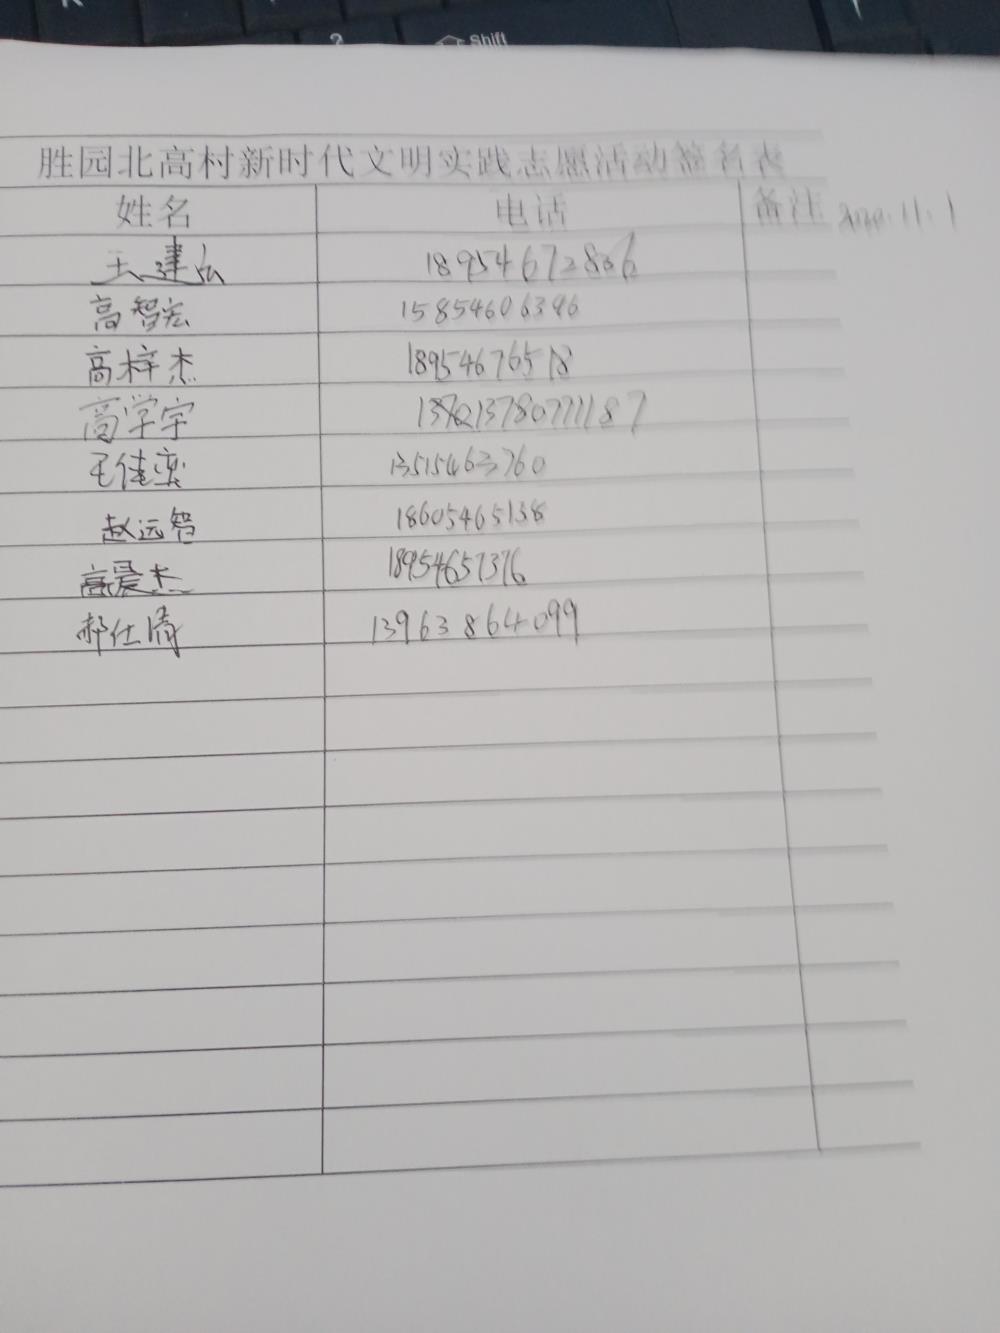 Shift
胜园北高村新时代文明实践志愿活动签名表
姓名 电话 备注 2020.11.1
王建弘 18954672806
高智宏 15854606396
高梓杰 18954676518
高学宇
王佳栾 13515463760
赵远智 18605465138
高爱杰 18954657376
郝仕清 13963864099